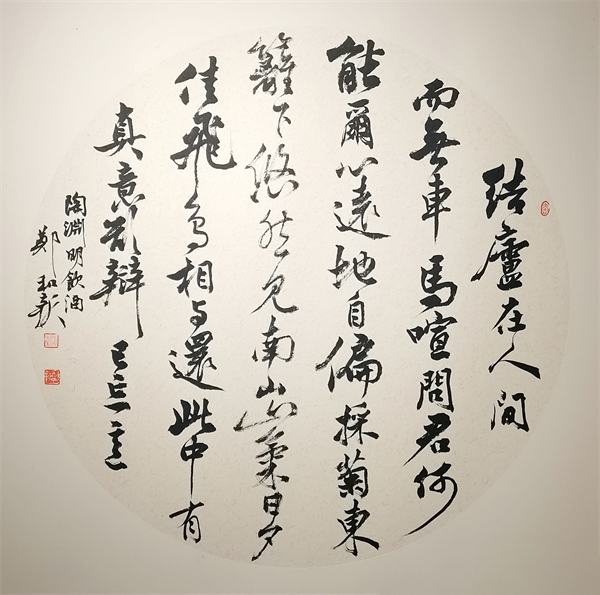 結廬在人間
而無車馬喧問君何
能爾心遠地自偏採菊東
籬下悠然見南山山氣日夕
佳飛鳥相与還此中有
真意欲辯已忘言
陶淵明飲酒
鄭和